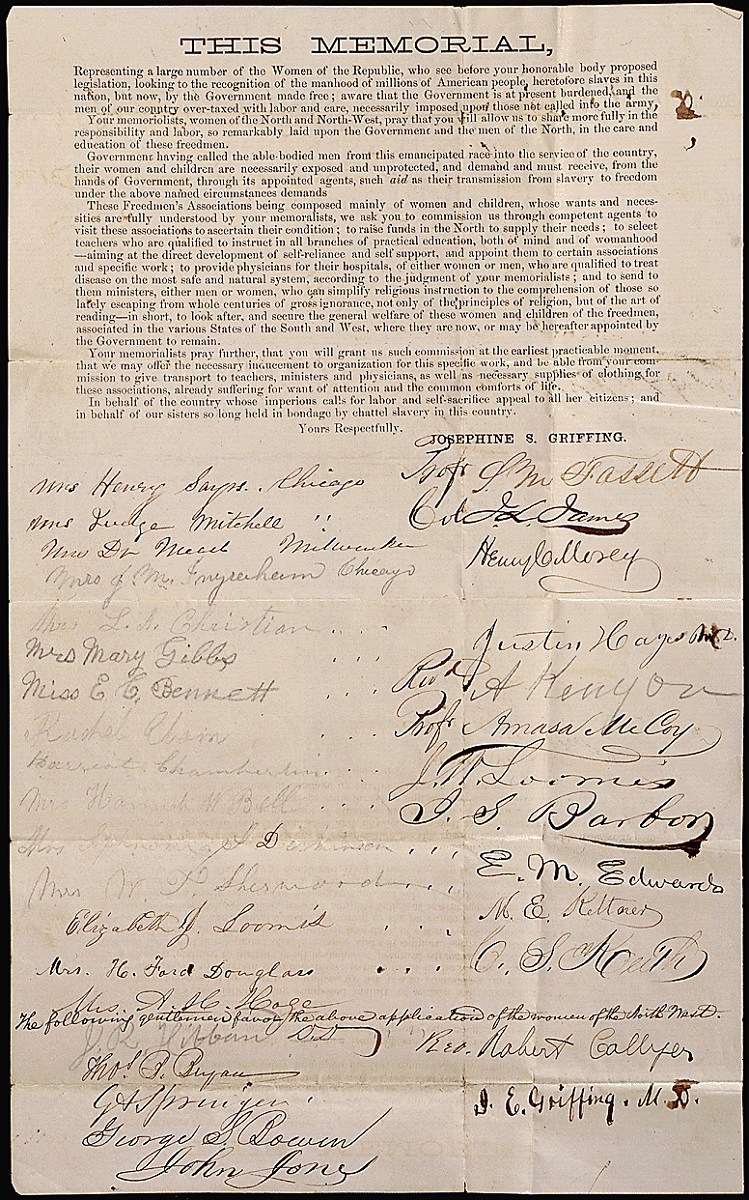 THIS MEMORIAL,
Representing a large number of the Women of the Republic, who see before your honorable body proposed
legislation, looking to the recognition of the manhood of millions of American people, heretofore slaves in this
nation, but now, by the Government made free; aware that the Government is at present burdened, and the
men of our country over-taxed with labor and care, necessarily imposed upon those not called into the army,
Your memorialists, women of the North and North-West, pray that you will allow us to share more fully in the
responsibility and labor, so remarkably laid upon the Government and the men of the North, in the care and
education of these freedmen.
Government having called the able-bodied men from this emancipated race into the service of the country,
their women and children are necessarily exposed and unprotected, and demand and must receive, from the
hands of Government, through its appointed agents, such aid as their transmission from slavery to freedom
under the above named circumstances demands
These Freedmen's Associations being composed mainly of women and children, whose wants and neces-
sities are fully understood by your memoralists, we ask you to commission us through competent agents to
visit these associations to ascertain their condition; to raise funds in the North to supply their needs; to select
teachers who are qualified to instruct in all branches of practical education, both of mind and of womanhood
—aiming at the direct development of self-reliance and self support, and appoint them to certain associations
and specific work; to provide physicians for their hospitals, of either women or men, who are qualified to treat
disease on the most safe and natural system, according to the judgment of your memorialists; and to send to
them ministers, either men or women, who can simplify religious instruction to the comprehension of those so
lately escaping from whole centuries of gross ignorance, not only of the principles of religion, but of the art of
reading—in short, to look after, and secure the general welfare of these women and children of the freedmen,
associated in the various States of the South and West, where they are now, or may be hereafter appointed by
the Government to remain.
Your memorialists pray further, that you will grant us such commission at the earliest practicable moment,
that we may offer the necessary inducement to organization for this specific work, and be able from your com-
mission to give transport to teachers, ministers and physicians, as well as necessary supplies of clothing for
these associations, already suffering for want of attention and the common comforts of life.
In behalf of the country whose imperious calls for labor and self-sacrifice appeal to all her citizens; and
in behalf of our sisters so long held in bondage by chattel slavery in this country.
Yours Respectfully.
JOSEPHINE S. GRIFFING.
Mrs Henry Sayrs. Chicago
Profr S. M Fassett
Mrs Judge Mitchell "
Col J. L. James
Mrs Dr Mead Milwaukee
Henry C Morey
Mrs J. M. Chicago
Mrs L. A. Christian . . .
Justin Hayes M. D.
Mrs Mary Gibbs . . .
Revd A Kenyon
Miss E C. Bennett . . .
Profr Amasa McCoy
Rachel . . .
J. W. Loomis
Harriet Chamberlin . . .
I. S. Barbor
Mrs Hannah W Bell . . .
Mrs Dickinson . . .
E. M. Edwards
Mrs W. P. Sherwood . . .
M. E. Kettner
Elizabeth J. Loomis . . .
C. S. Keith
Mrs. H. Ford Douglass . . .
Mrs. A. H. Hoge
The following gentlemen favor the above application of the women of the North West.
DD
Rev. Robert Collyer
Thos B. Bryan
G A Springer
I. E. Griffing. M. D.
George S. Bowen
John Jones